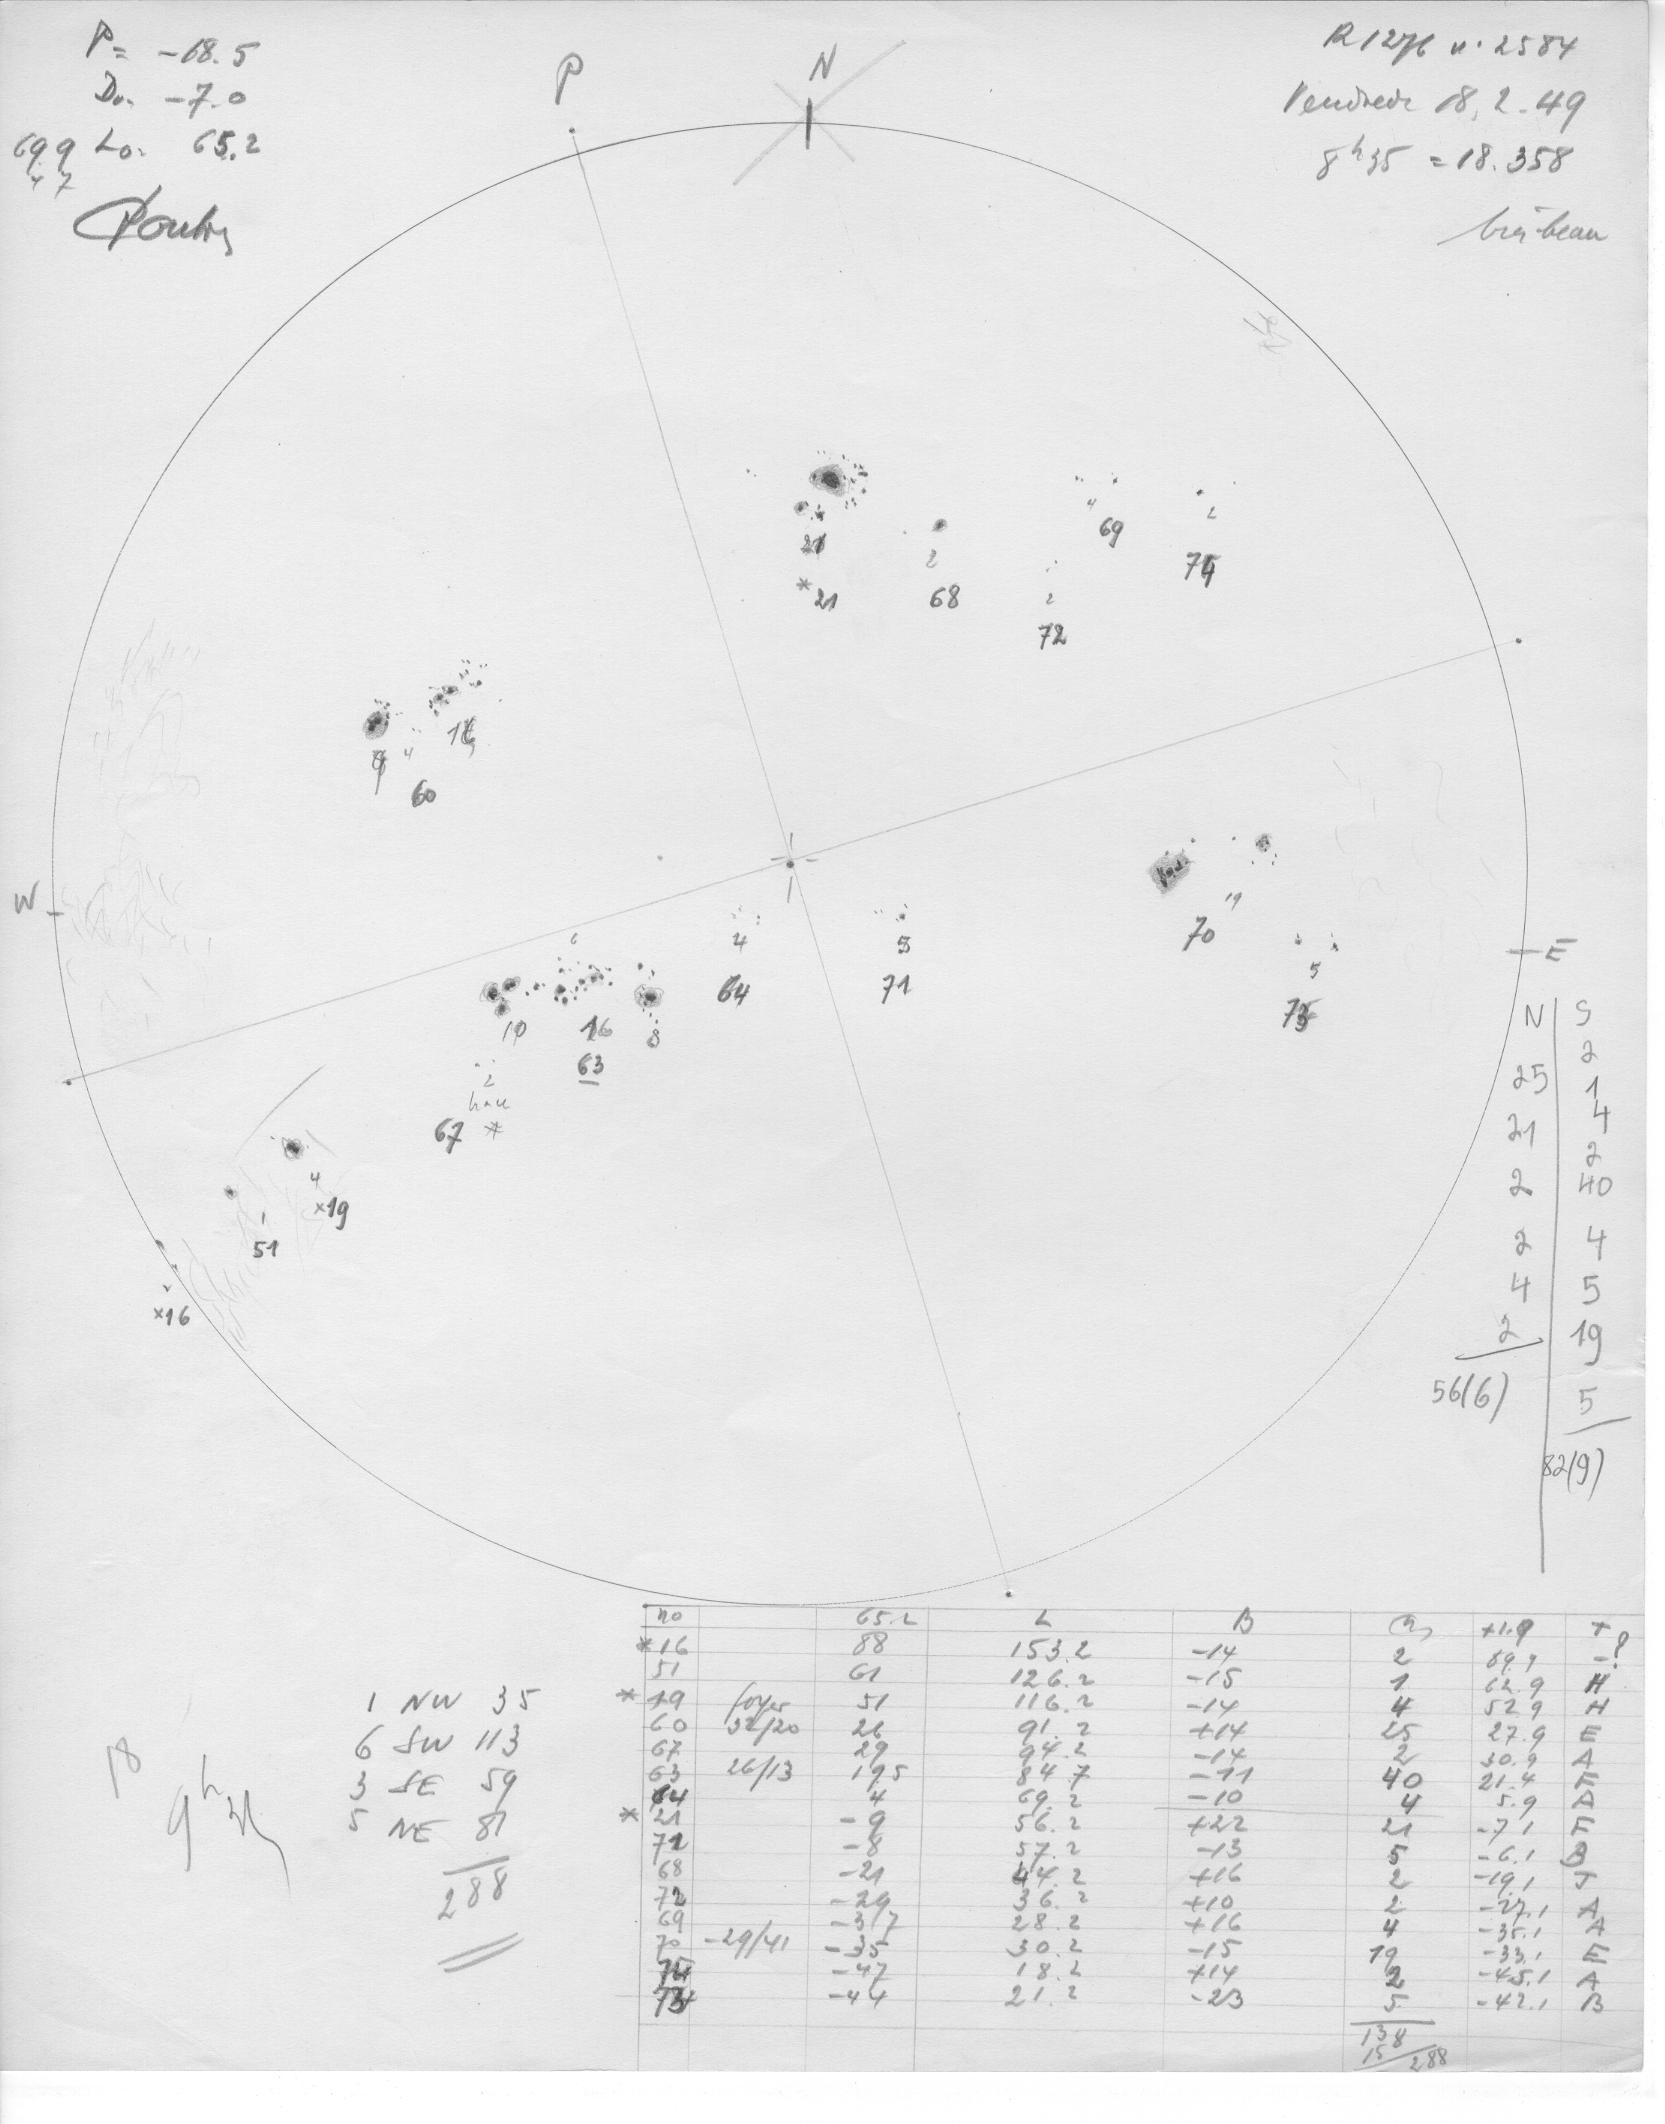 P= -18.5
Do. -7.0
69.9 Lo. 65.2
P
N
R1276 n. 2584
18.2.49
8h35 = 18.358
très beau
21
*21
2
68
4
69
2
72
2
9
4
60
W
E
10
6
16
63
8
4
64
5
71
19
70
5
75
2
67 *
4
×19
1
51
×16
N S
2
25 1
21 4
2 2
40
2 4
4 5
2 19
56(6) 5
82(9)
1 NW 35
6 SW 113
3 SE 59
5 NE 81
288
18
no 65.2 L B +1.9 T
*16 88 153.2 -14 2 89.9 -?
51 61 126.2 -15 1 62.9 H
*19 foyer 51 116.2 -14 4 52.9 H
60 32/20 26 91.2 +14 25 27.9 E
67 29 94.2 -14 2 30.9 A
63 26/13 19.5 84.7 -11 40 21.4 F
64 4 69.2 -10 4 5.9 A
*21 -9 56.2 +22 21 -7.1 F
71 -8 57.2 -13 5 -6.1 B
68 -21 44.2 +16 2 -19.1 J
72 -29 36.2 +10 2 -27.1 A
69 -37 28.2 +16 4 -35.1 A
70 -29/41 -35 30.2 -15 19 -33.1 E
-47 18.2 +14 2 -45.1 A
-44 21.2 -23 5 -42.1 B
138
15 288